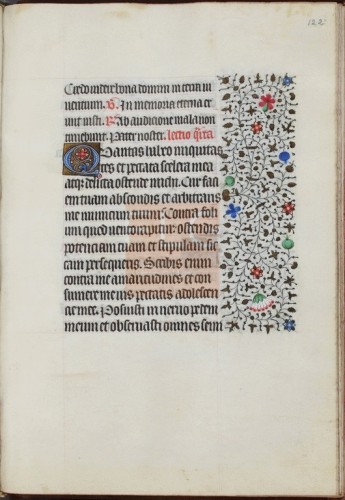 122
Credo videre bona domini in terra vi
ventium. V. In memoria eterna er
unt iusti. R. Ab auditione mala non
timebunt. Pater noster. lectio qrta
Quantas habeo iniquitas
tes et peccata scelera mea
atqz delicta ostende michi. Cur faci
em tuam abscondis et arbitraris
me inimicum tuum. Contra foli
um quod vento rapitur ostendis
potenciam tuam et stipulam sic
cam persequeris. Scribis enim
contra me amaritudines et con
sumere me vis peccatis adolescen
cie mee. Posuisti in nervo pedem
meum et observasti omnes semi